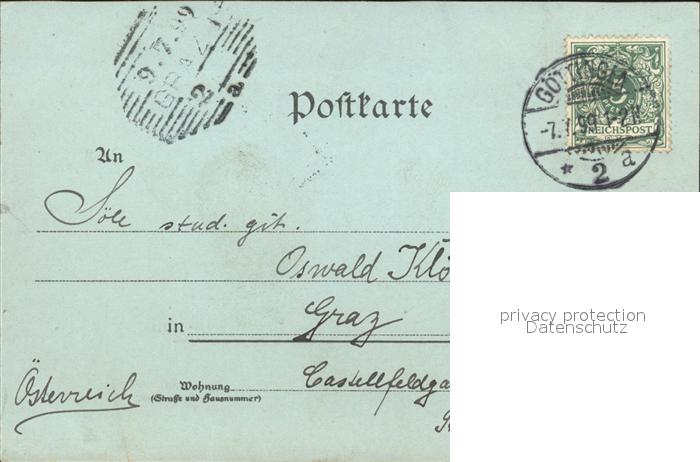 9.7.99
GRAZ
2
a
Postkarte
GÖTTINGEN
-7.7.99.1-2N
* 2 a
5
REICHSPOST
An
stud.
Oswald Klö
in Graz
Castellfeldga
Österreich
Wohnung
(Straße und Hausnummer)
privacy protection
Datenschutz